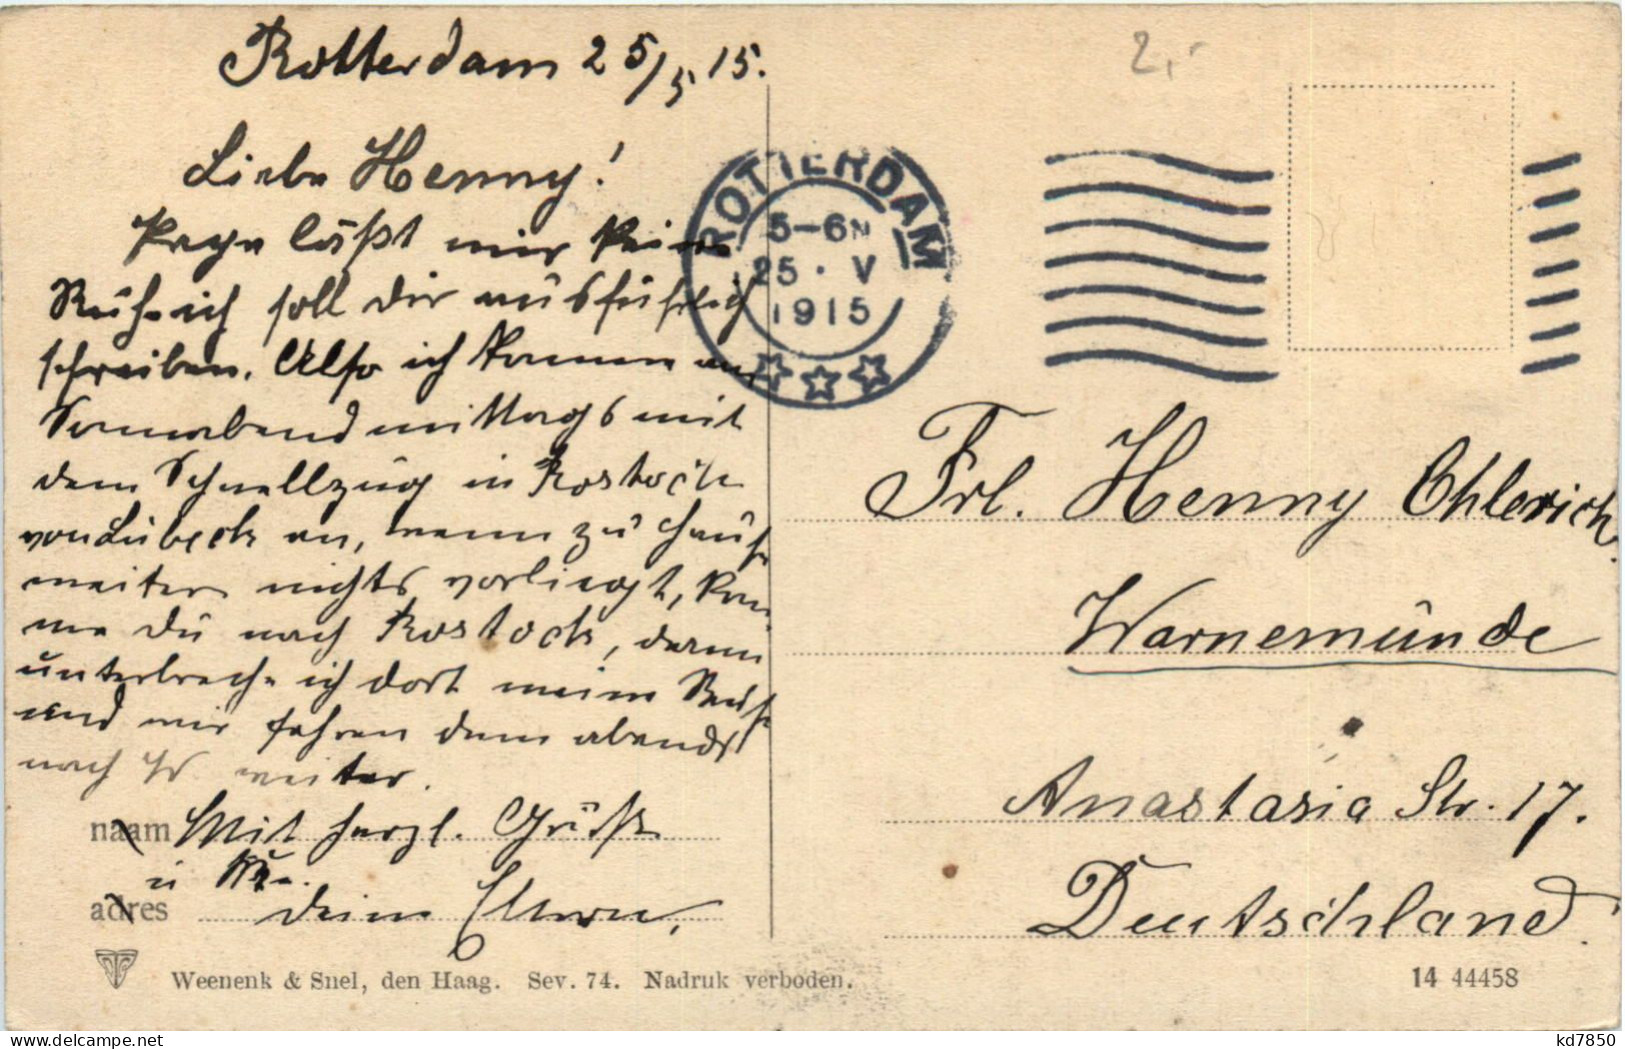 Rotterdam 25/5 15.
Liebe Henny!
läßt mir keine
Ruhe ich soll dir ausführlich
schreiben. Also ich komme am
Sonnabend mittags mit
dem Schnellzug in Rostock
von Lübeck an, wenn zu Hause
weiter nichts vorliegt, kom
me du nach Rostock, dann
unterbreche ich dort meine Reise
und wir fahren dann abends
nach W weiter.
naam Mit herzl. Grüße
u
adres deine Eltern,
Weenenk & Snel, den Haag. Sev. 74. Nadruk verboden.
2,-
ROTTERDAM
5-6N
25 · V
1915
Frl. Henny Ohlerich
Warnemünde
Anastasia Str. 17.
Deutschland.
14 44458
kd7850